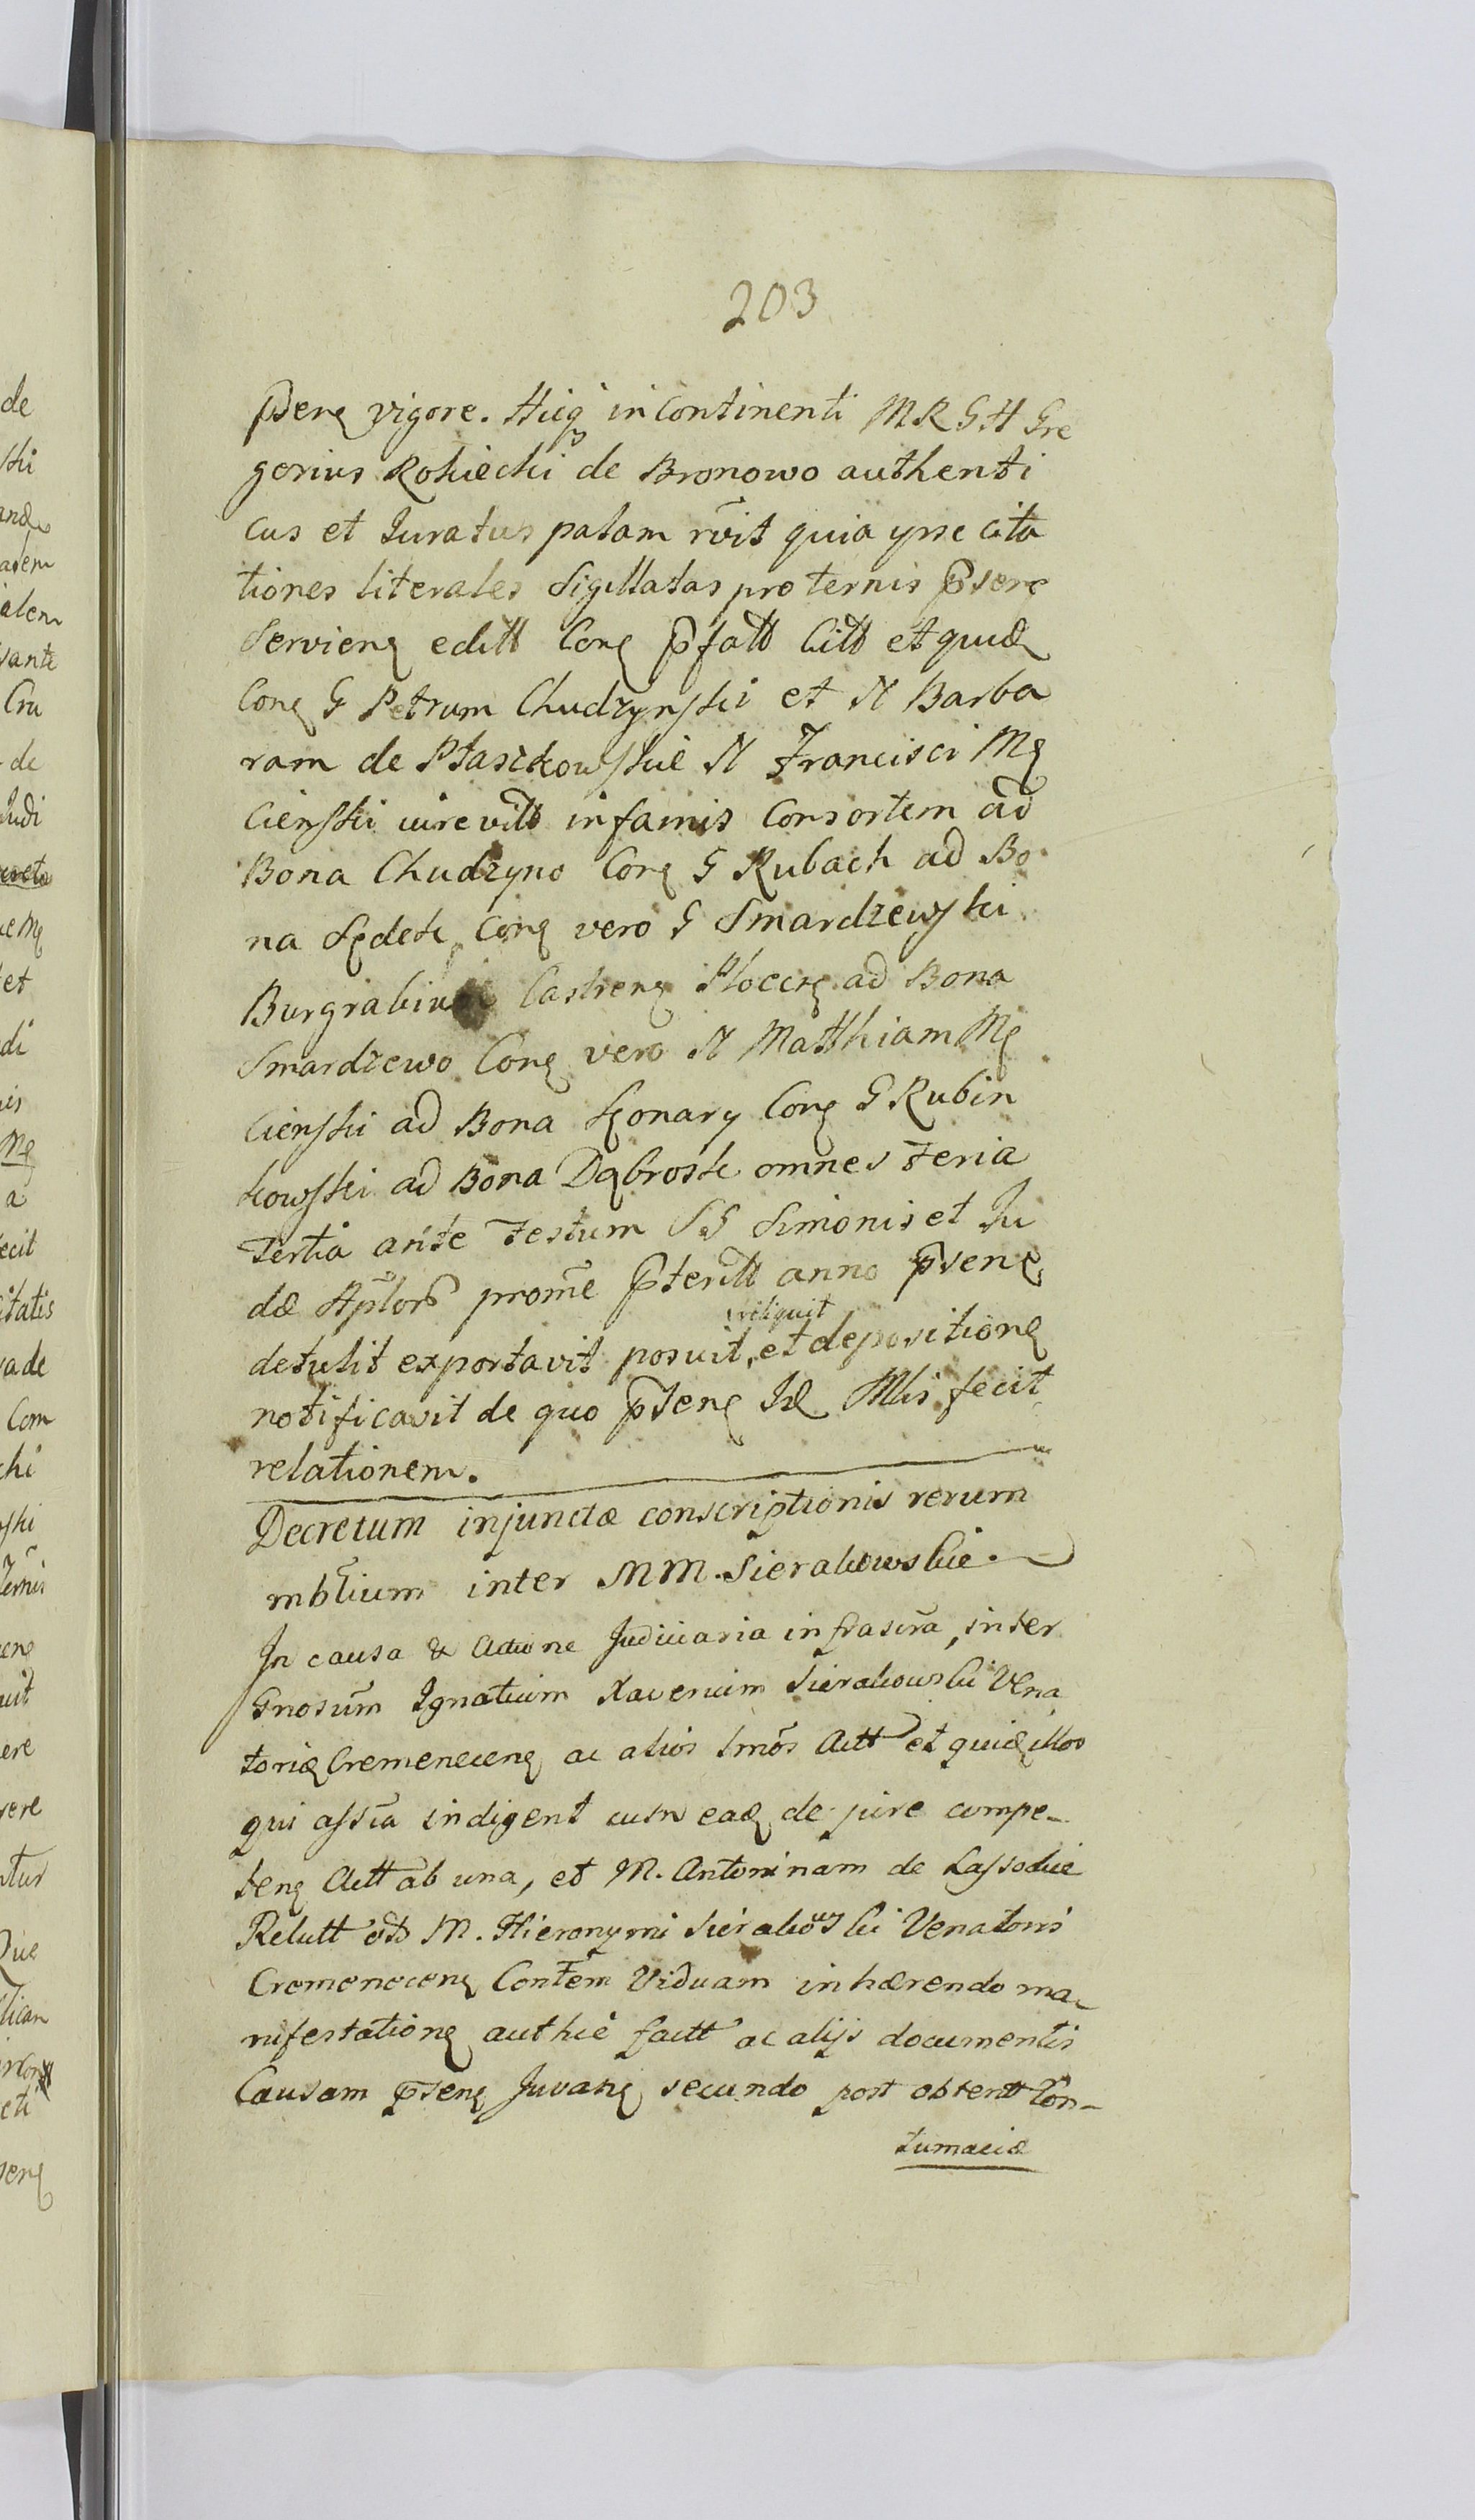 203
p̄senꝫ vigore. Hicqꝫ in continenti M R G H Gre
gorius Rokiecki de Bronowo authenti
cus et Juratus palam rv̄it quia ipse cita
tiones literales Sigillatas pro ternis p̄senꝫ
Servienꝫ editt Conꝫ p̄fatt Citt et quidꝫ
Conꝫ G Petrum Chudzynski et N Barba
ram de Płaszkowskie N Francisci Mę
cienski iure vitt infamis Consortem ad
Bona Chudzyno Conꝫ G Rubach ad Bo
na Sędek Conꝫ vero G Smardzewski
Burgrabium Castrenꝫ Plocenꝫ ad Bona
Smardzewo Conꝫ vero N Matthiam Mę
cienski ad Bona Konary Conꝫ G Rubin
kowski ad Bona Dąbrosk omnes Feria
Tertia ante Festum SS Simonis et Ju
dæ Aplor̄ proxme p̄teritt anno p̄senꝫ
detulit exportavit posuit, et depositionꝫ
reliquit
notificavit de quo p̄senꝫ Idꝫ Mlis fecit
relationem.
Decretum injunctæ conscriptionis rerum
mblium inter MM. Sierakowskie.
In causa & Actione Judiciaria infrascra, inter
Gnosum Ignatium Xaverium Sierakowski Vena
toridꝫ Cremenecenꝫ ac alios Imōs Actt et quidꝫ illos
qui assīa indigent cum eadꝫ de jure compe-
tenꝫ Actt ab una, et M. Antoninam de Lassockie
Relictt ōd M. Hieronymi Sierakowski Venatoris
Cremenecenꝫ Contem Viduam inhærendo ma-
nifestationꝫ authce factt ac alijs documentis
Causam p̄senꝫ Juvanꝫ secundo post obtentt Con-
tumaciæ